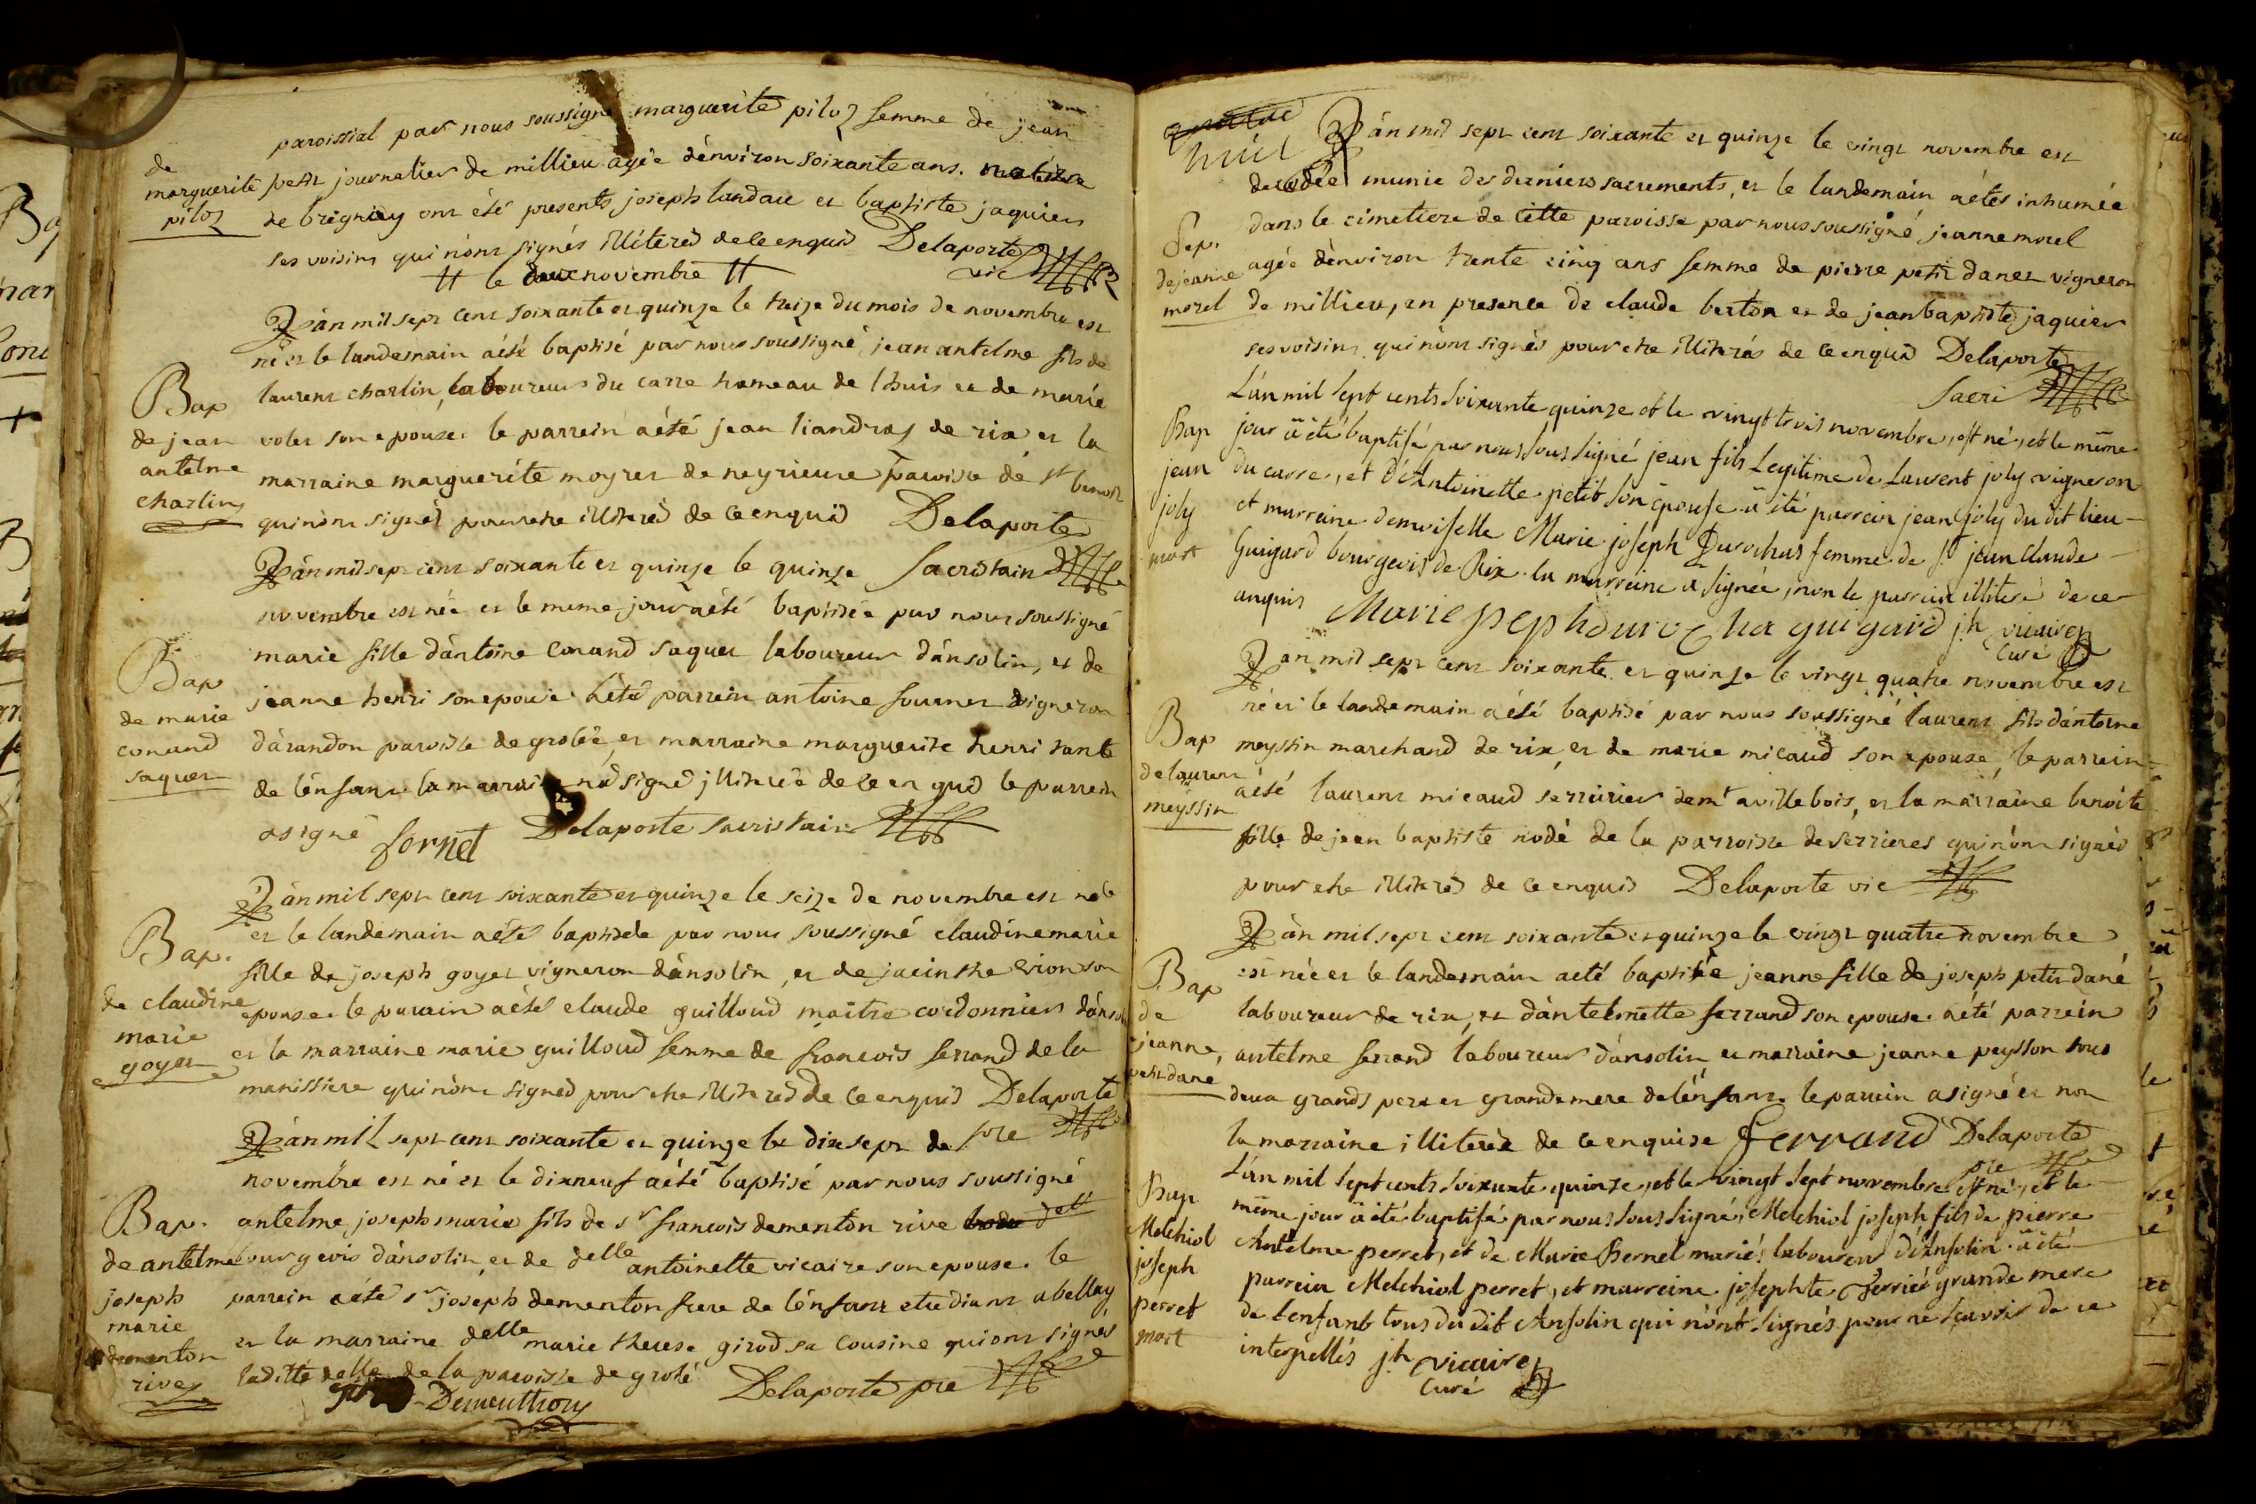 paroissial par nous soussigné marguerite piloz femme de jean
de
marguerite
piloz
petit journalier de millieu agée dénviron soixante ans. native
de bregniey ont été presents joseph landau et baptiste jaquier
ses voisins qui nónt signés illiterés de ce enquis Delaporte
vic
le deux novembre
Bap
de jean
antelme
charlin
Lán mil sept cent soixante et quinze le treize du mois de novembre est
né et le landemain aété baptisé par nous soussigné, jean antelme fils de
laurent charlin, laboureur du carre hameau de lhuis et de marie
volet son epouse. le parrein aété jean liandraz de rix et la
marraine marguerite moyret de neyrieure paroisse de st benoit
qui nónt signés pour etre illiterés de ce enquis Delaporte
Sacristain
Lán mil sept cent soixante et quinze le quinze
Bap
de marie
conand
saquet
novembre est née et le meme jour aété baptisée par nous soussigné
marie fille dántoine conand saquet laboureur dánsolin, et de
jeanne henri son epouse. aété parrein antoine fournet vigneron
dárandon paroisse de grolée et marraine marguerite henri tante
de lénfant. la marraine ná signé illiterée de ce en quis le parrein
a signé fornet Delaporte sacristain
Bap.
de claudine
marie
goyet
Lán mil sept cent soixante et quinze le seize de novembre est née
et le landemain aété baptisée par nous soussigné claudine marie
fille de joseph goyet vigneron dánsolin, et de jacinthe son
epouse. le parrain aété claude guilloud maitre cordonnier dánsolin
et la marraine marie guilloud femme de francois ferrand de la
manissiere qui nónt signés pour etre illiterés de ce enquis Delaporte
pre
Lán mil sept cent soixante et quinze le dixsept de
Bap.
de antelme
joseph
marie
dementon
rive
novembre est né et le dixneuf aété baptisé par nous soussigné
antelme joseph marie fils de sr francois dementon rive
bourgeois dánsolin et de delle antoinette vicaire son epouse. le
parrein aété sr joseph dementon frere de lénfant etudiant abelley
et la marraine delle marie therese girod sa cousine qui ont signés
laditte delle de la paroisse de grolé
Dementhon Delaporte pre
Sep.
de jeanne
morel
Lán mil sept cent soixante et quinze le vingt novembre est
decedée munie des derniers sacrements, et le landemain aétés inhumée
dans le cimetiere de cette paroisse par nous soussigné jeanne morel
agée dénviron trente cinq ans femme de pierre petit danet vigneron
de millieu, en presence de claude berton et de jean baptiste jaquier
ses voisins qui nónt signés pour etre illiterés de ce enquis Delaporte
Sacri
Bap
jean
joly
mort
L'an mil sept cents soixante quinze et le vingt trois novembre, est né, et le même
jour a été baptisé par nous sous signé jean fils legitime de Laurent joly vigneron
du carre, et d'Antoinette petit son épouse a été parrein jean joly du dit lieu
et marreine demoiselle Marie joseph Durochas femme de Sr jean Claude
Guigard bourgeois de Rix. la marreine a signée, non le parrein illiteré de ce
anquis Marie joseph duro cha guigard jh vicaire
Curé
Bap
de laurent
meyssin
Lán mil sept cent soixante et quinze le vingt quatre novembre est
né et le landemain aété baptisé par nous soussigné laurent fils dántoine
meyssin marchand de rix, et de marie micaud son epouse, le parrein
aété laurent micaud serrurier demt avillebois, et la marraine benoite
fille de jean baptiste nodé de la parroisse de serrieres qui nónt signés
pour etre illiterés de ce enquis Delaporte vic
Bap
de
jeanne
petit dané
Lán mil sept cent soixante et quinze le vingt quatre novembre
est née et le landemain aeté baptisée jeanne fille de joseph petit dané
laboureur de rix, et dántelmette ferrand son epouse. aété parrein
antelme ferrand laboureur dánsolin et marraine jeanne peysson tous
deux grands pere et grande mere de lénfant. le parrein a signé et non
la marraine illiterée de ce enquise Ferrand Delaporte
pre
Bap
Melchiol
joseph
perret
mort
L'an mil sept cents soixante quinze, et le vingt sept novembre est né, et le
même jour a été baptisé par nous sous signé, Melchiol joseph fils de pierre
Antelme perret, et de Marie Bernel mariés laboureur d'Ansolin. a été
parrein Melchiol perret, et marreine josephte Ferrié grande mere
de l'enfant tous du dit Ansolin qui n'ont signés pour ne sçavoir de ce
interpellés jh vicaire
Curé